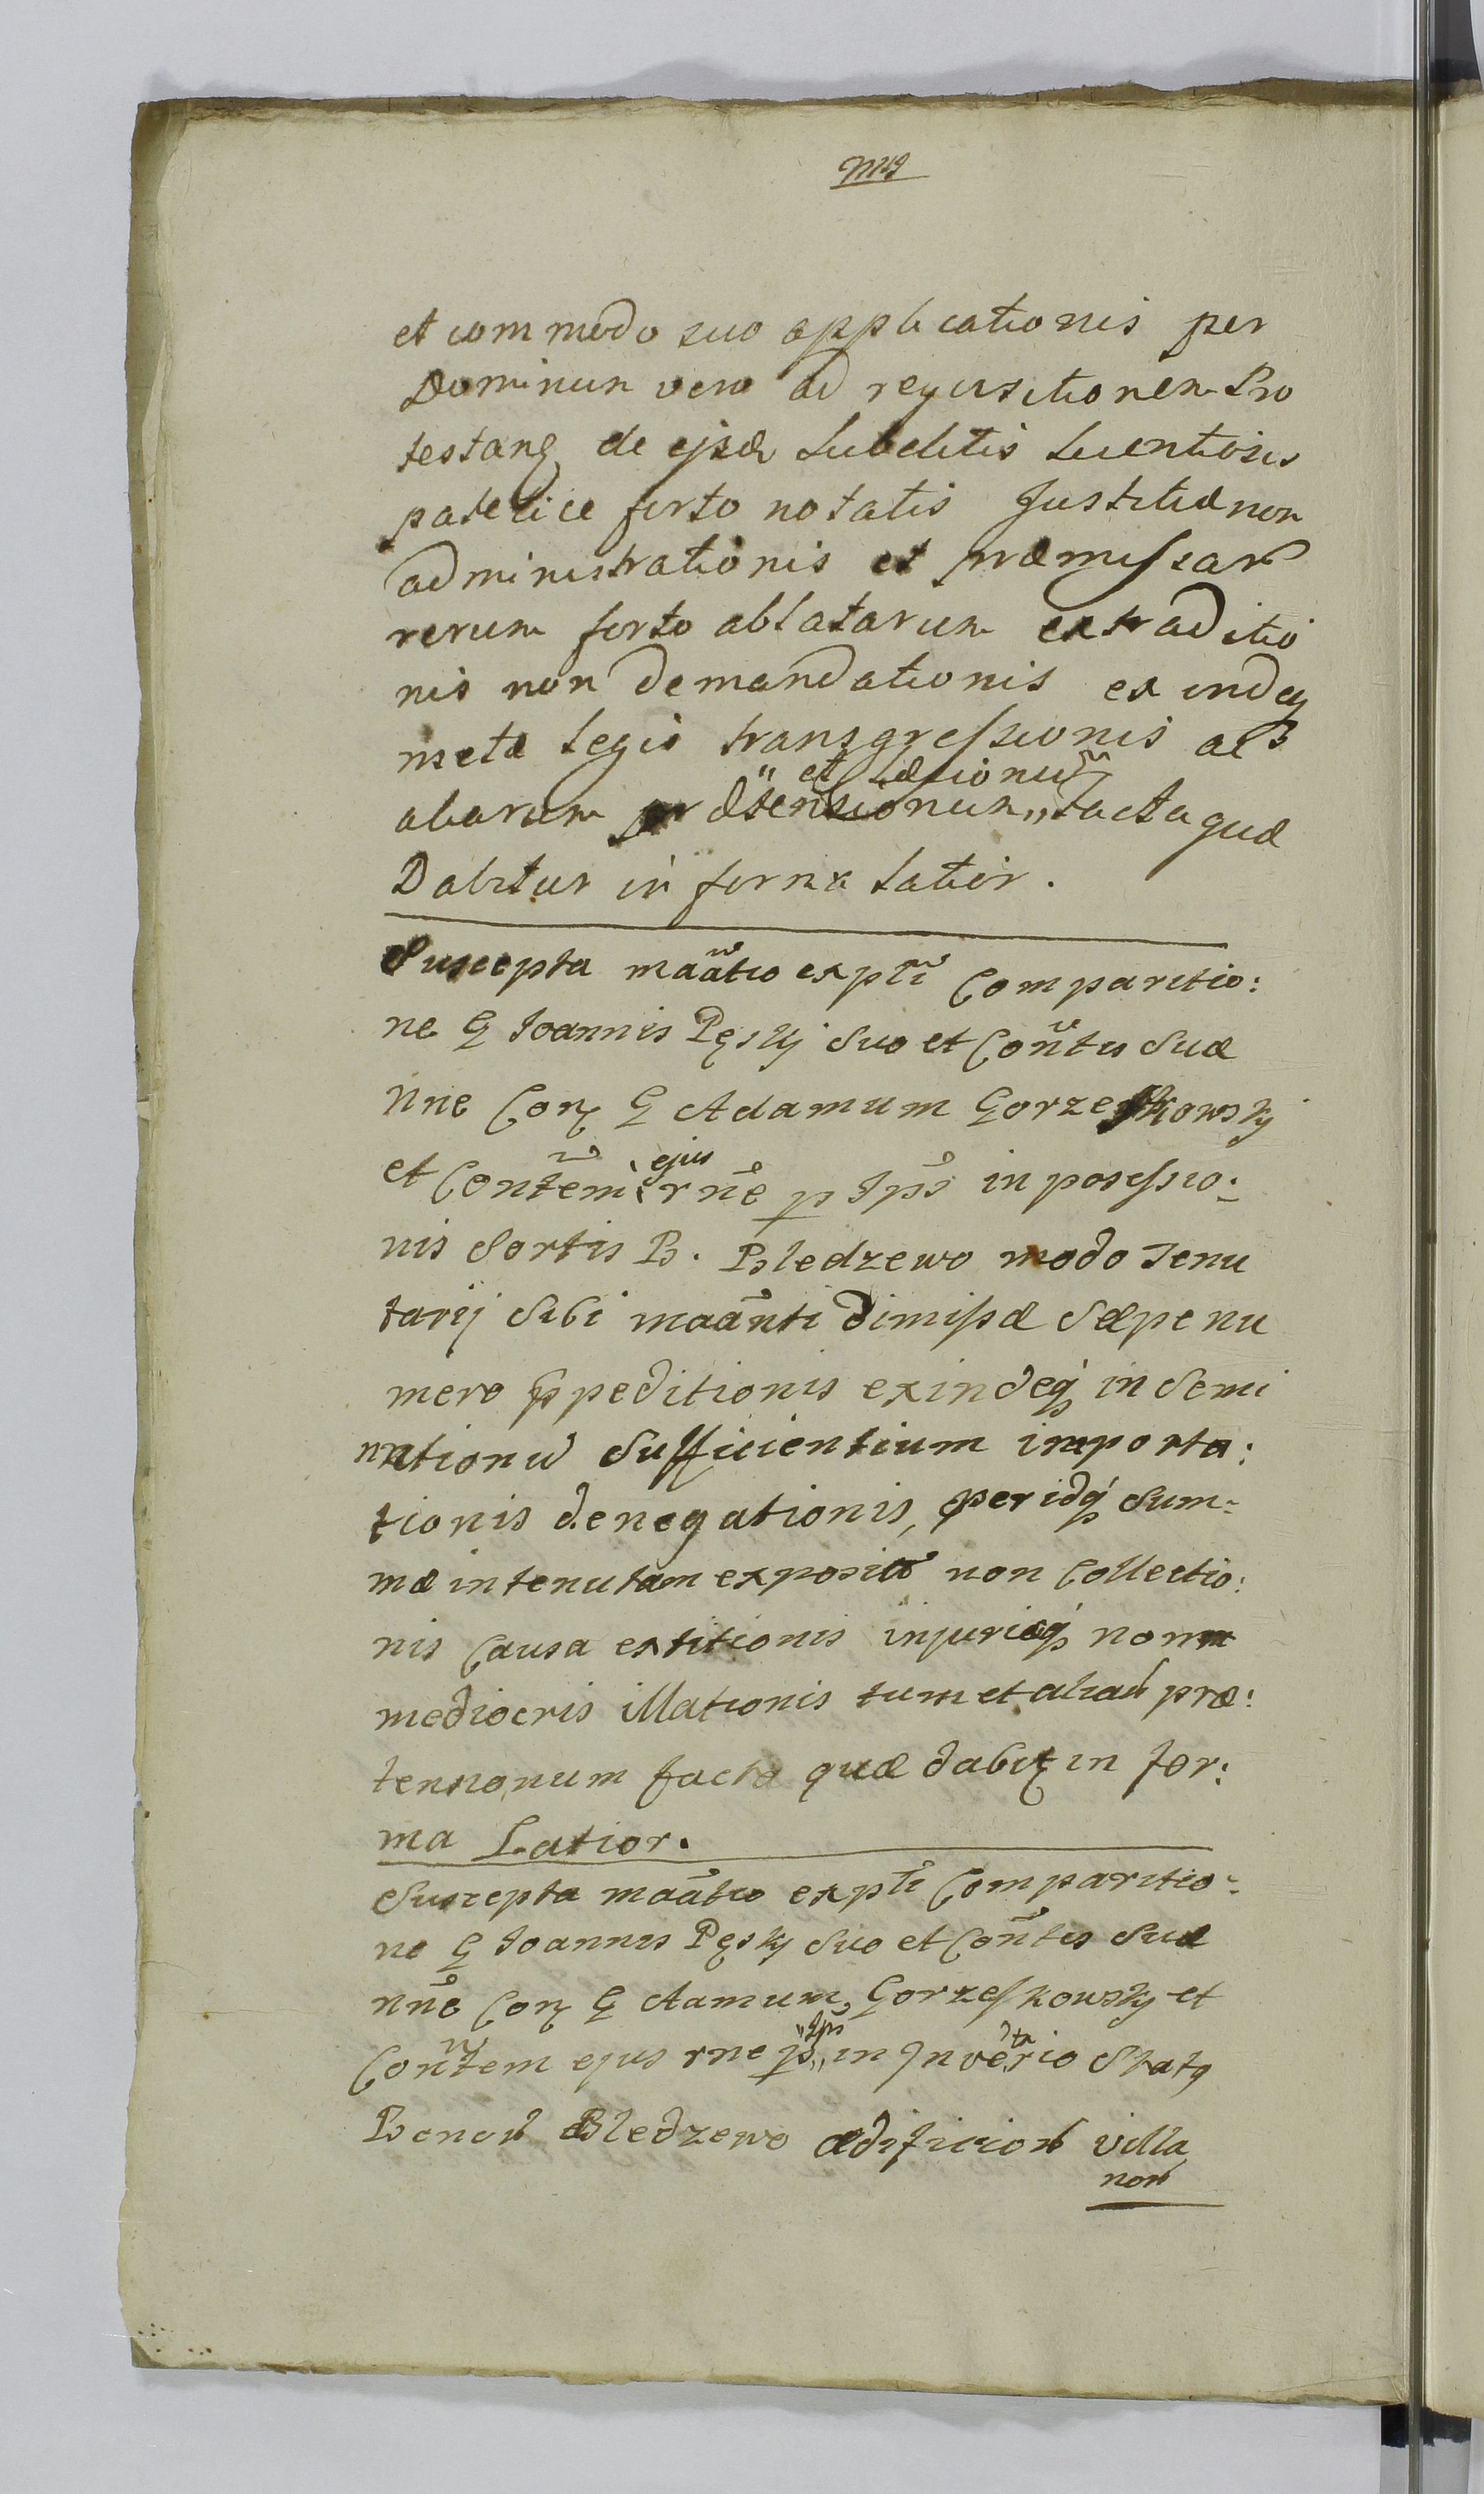 et commodo suo applicationis per
Dominum vero ad requisitionem Pro
testang de ejsd Subditis licentiosis
patetice furto notatis Justitiæ non
administrationis et præmissar
rerum furto ablatarum extraditio
nis non demandationis ex indeq
metæ legis transgressionis ac
aliarum prætensionum et Læsionum facta quæ
Dabitur in forma latior.
Suscepta maãtio expti Comparitio:
ne G Joannis Pęsky Suo et Coñtis Suæ
nne Con G Adamum Gorzeskowsky
et Coñtem ejus rñe p Jps in possessio:
nis Sortis B. Bledzewo modo Tenu
tarij Sibi maãnti dimissæ Sæpe nu
mero peditionis exindeq in Semi
nationũ Sufficientium importa:
tionis denegationis, peridq Sum=
mæ in tenutam expositæ non Collectio:
nis Causa extitionis injuriæq non
mediocris illationis tum et aliar præ:
tensionum facta quæ dabit in for:
ma Latior.
Suscepta maãtio expti Comparitio:
ne G Joannis Pęsky Suo et Coñtis Suæ
nñe Con G Adamum Gorzeskowsky et
Coñtem ejus rne p Jps in Inverio Stats
Bonor Bledzewo ædificior villa
nor